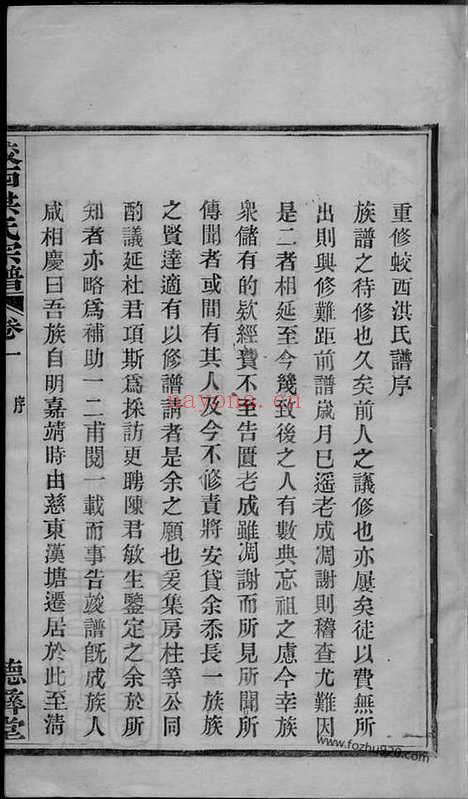 重修蛟西洪氏譜序
族譜之待修也久矣前人之議修也亦屢矣徒以費無所
出則興修難距前譜歲月已遥老成凋謝則稽查尤難因
是二者相延至今幾致後之人有數典忘祖之慮今幸族
衆儲有的欵經費不至告匱老成雖凋謝而所見所聞所
傳聞者或間有其人及今不修責將安貸余忝長一族族
之賢達適有以修譜請者是余之願也爰集房柱等公同
酌議延杜君項斯爲採訪更聘陳君敏生鑒定之余於所
知者亦略爲補助一二甫閱一載而事告竣譜旣成族人
咸相慶曰吾族自明嘉靖時由慈東漢塘遷居於此至清
蛟西洪氏宗譜
卷一
序
德彝堂
nayona.cn
www.fozhu920.com